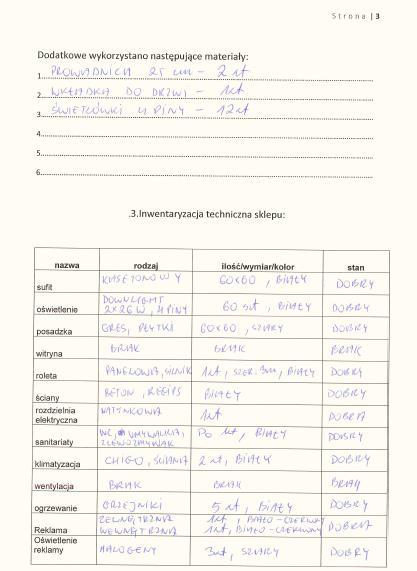 Strona | 3
Dodatkowe wykorzystano następujące materiały:
1. PROWADNICA 25 cm - 2 szt
2. WKŁADKA DO DRZWI - 1szt
3. ŚWIETLÓWKI 4 PINY - 12szt
4.
5.
6.
.3.Inwentaryzacja techniczna sklepu:
nazwa rodzaj ilość/wymiar/kolor stan
sufit KASETONOWY 60x60 , BIAŁY DOBRY
oświetlenie DOWNLIGHT 2x26W, 4 PINY 60 szt , BIAŁY DOBRY
posadzka GRES, PŁYTKI 60x60 , SZARY DOBRY
witryna BRAK BRAK BRAK
roleta PANELOWA, SILNIK 1szt, SZER. 3m, BIAŁY DOBRY
ściany BETON , REGIPS BIAŁY DOBRY
rozdzielnia elektryczna NATYNKOWA 1szt DOBRA
sanitariaty WC, UMYWALKA, ZLEWOZMYWAK PO 1szt, BIAŁY DOBRY
klimatyzacja CHIGO, ŚCIANA 2 szt, BIAŁY DOBRY
wentylacja BRAK BRAK BRAK
ogrzewanie GRZEJNIKI 5 szt, BIAŁY DOBRY
Reklama ZEWNĘTRZNA 1szt, BIAŁO-CZERWONY
WEWNĘTRZNA 1szt, BIAŁO-CZERWONY DOBRA
Oświetlenie reklamy HALOGENY 3szt, SZARY DOBRY